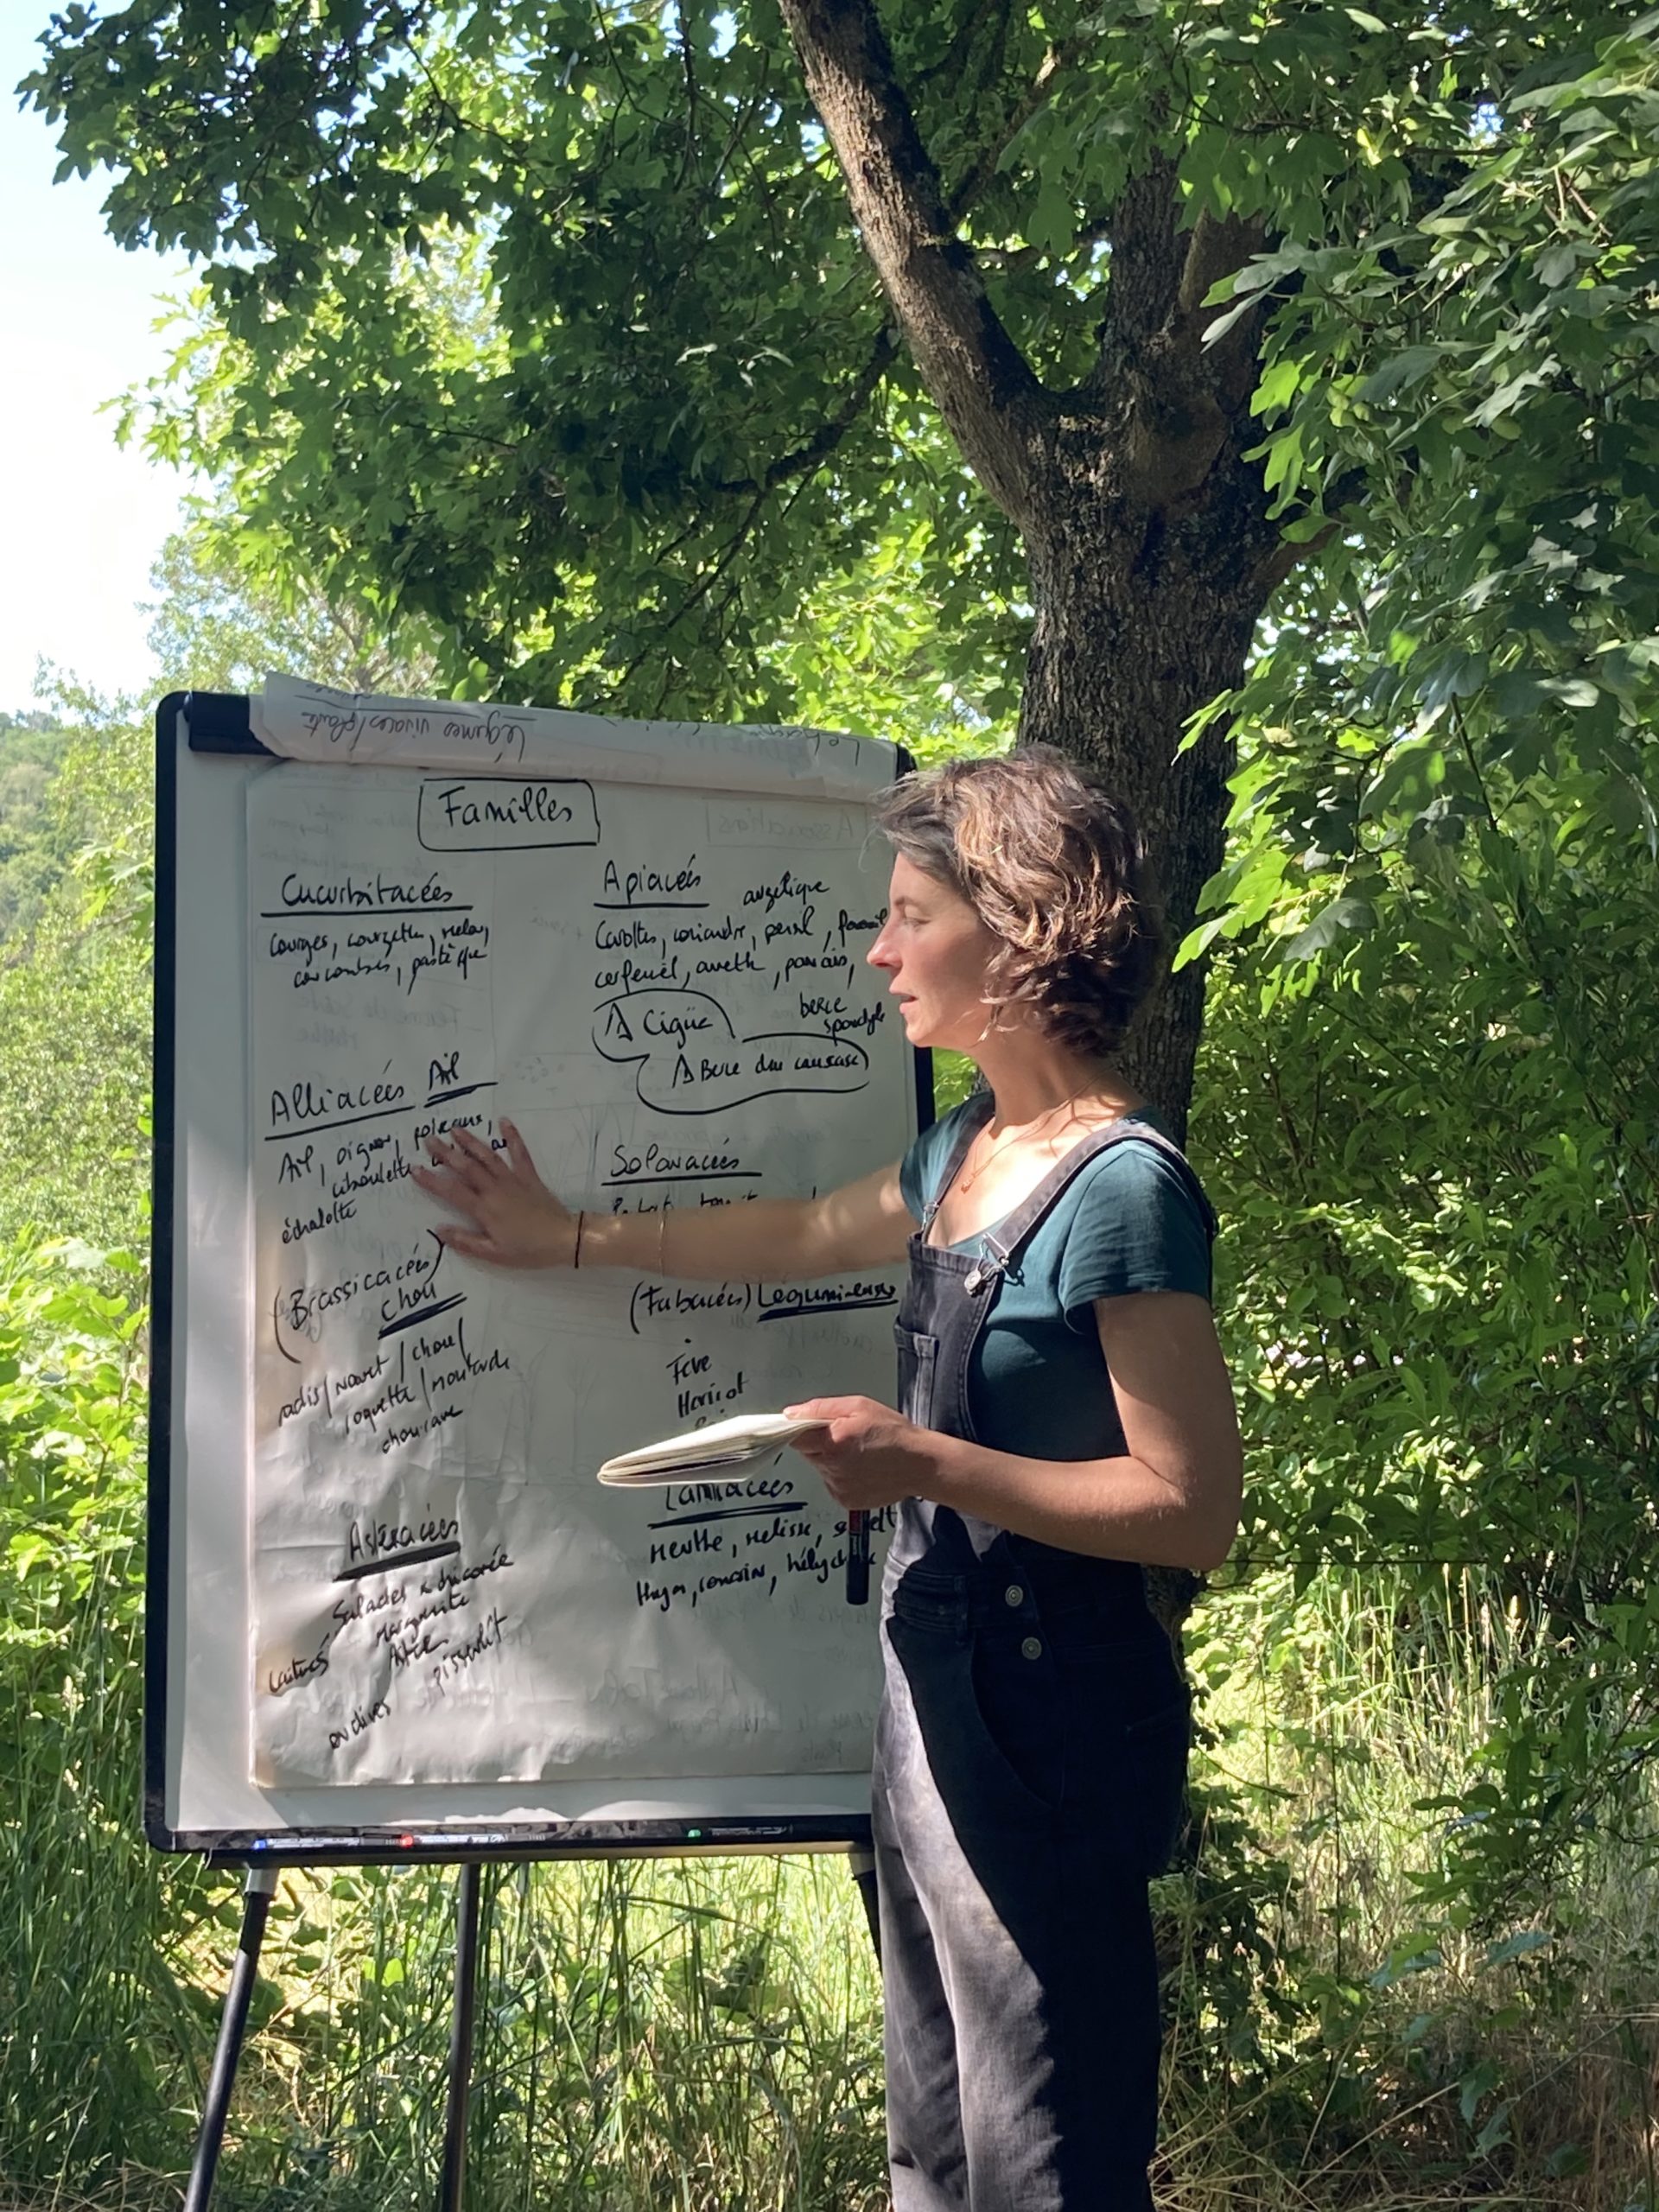 Légumes vivaces/
Familles
Cucurbitacées
Courges, courgette, melon,
concombres, pastèque
Alliacées Ail
Ail, oignon, poireaux,
ciboulette
échalotte
(Brassicacées)
Chou
radis/navet/chou/
roquette/moutarde
chou rave
Astéracées
Salades chicorée
Marguerite
laitues
pissenlit
endives
Apiacés
angélique
Carottes, coriandre, persil,
cerfeuil, aneth, panais,
berce
spondyle
⚠ Cigüe
⚠ Berce du caucase
Solanacées
(Fabacées) Légumineuses
Fève
Haricot
Lamiacées
menthe, mélisse,
Thym, romarin,